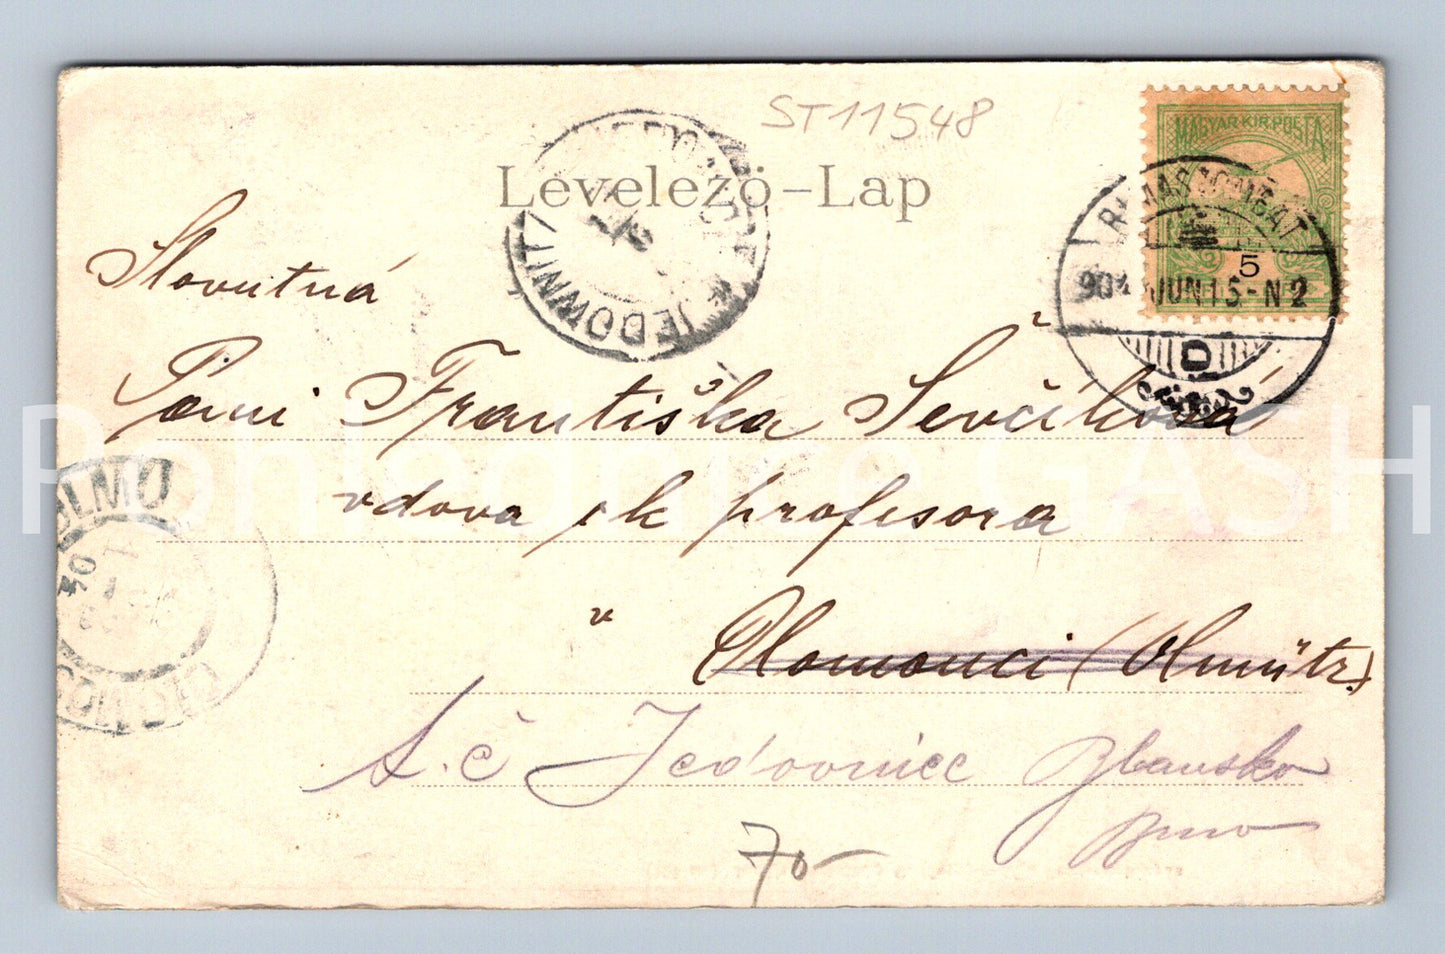 ST11548
Levelező-Lap
MAGYAR KIR. POSTA
RIMASZOMBAT
5
904 JUN 15-N 2
D
JEDOWNITZ * JEDOVNICE
Slovutná
Paní Františka Ševčíková
vdova pk profesora
v Olomouci (Olmütz.)
OLMÜ
04
A. č Jedovnice Blansko
Brno
70
Pohlednice GASH